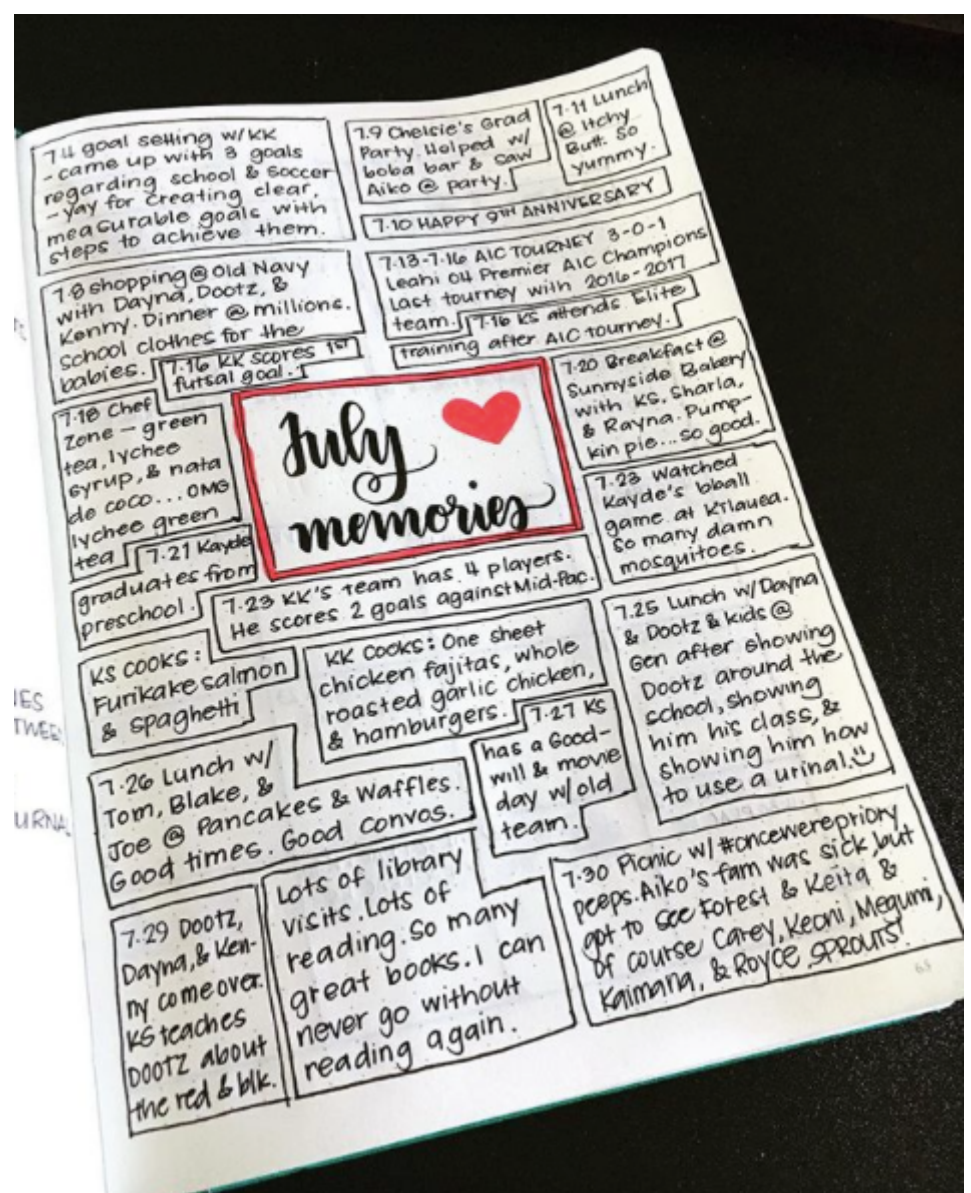 7.4 goal setting w/KK
- came up with 3 goals
regarding school & soccer
- yay for creating clear,
measurable goals with
steps to achieve them.
7.9 Chelsie's Grad
Party. Helped w/
boba bar & saw
Aiko @ party.
7.11 Lunch
@ Itchy
Butt. So
yummy.
7.10 HAPPY 9TH ANNIVERSARY
7.8 shopping @ Old Navy
with Dayna, Dootz, &
Kenny. Dinner @ millions.
School clothes for the
babies.
7.13-7.16 AIC TOURNEY 3-0-1
Leahi 04 Premier AIC Champions
Last tourney with 2016-2017
team.
7.16 KS attends Elite
training after AIC tourney.
7.16 KK scores 1st
futsal goal.
7.18 Chef
Zone - green
tea, lychee
syrup, & nata
de coco... OMG
lychee green
tea
July
memories
7.20 Breakfast @
Sunnyside Bakery
with KS, Sharla,
& Rayna. Pump-
kin pie... so good.
7.23 Watched
Kayde's bball
game at Kilauea.
So many damn
mosquitoes.
7.21 Kayde
graduates from
preschool.
7.23 KK's team has 4 players.
He scores 2 goals against Mid-Pac.
KS COOKS:
Furikake salmon
& spaghetti
KK COOKS: One sheet
chicken fajitas, whole
roasted garlic chicken,
& hamburgers.
7.25 Lunch w/Dayna
& Dootz & kids @
Gen after showing
Dootz around the
school, showing
him his class, &
showing him how
to use a urinal.
7.26 Lunch w/
Tom, Blake, &
Joe @ Pancakes & Waffles.
Good times. Good convos.
7.27 KS
has a Good-
will & movie
day w/old
team.
7.29 Dootz,
Dayna, & Ken-
ny come over.
KS teaches
DOOTZ about
the red & blk.
Lots of library
visits. Lots of
reading. So many
great books. I can
never go without
reading again.
7.30 Picnic w/ #oncewerepriory
peeps. Aiko's fam was sick, but
got to see Forest & Keita &
of course Carey, Keoni, Megumi,
Kaimana, & Royce SPROUTS!
65
URNA